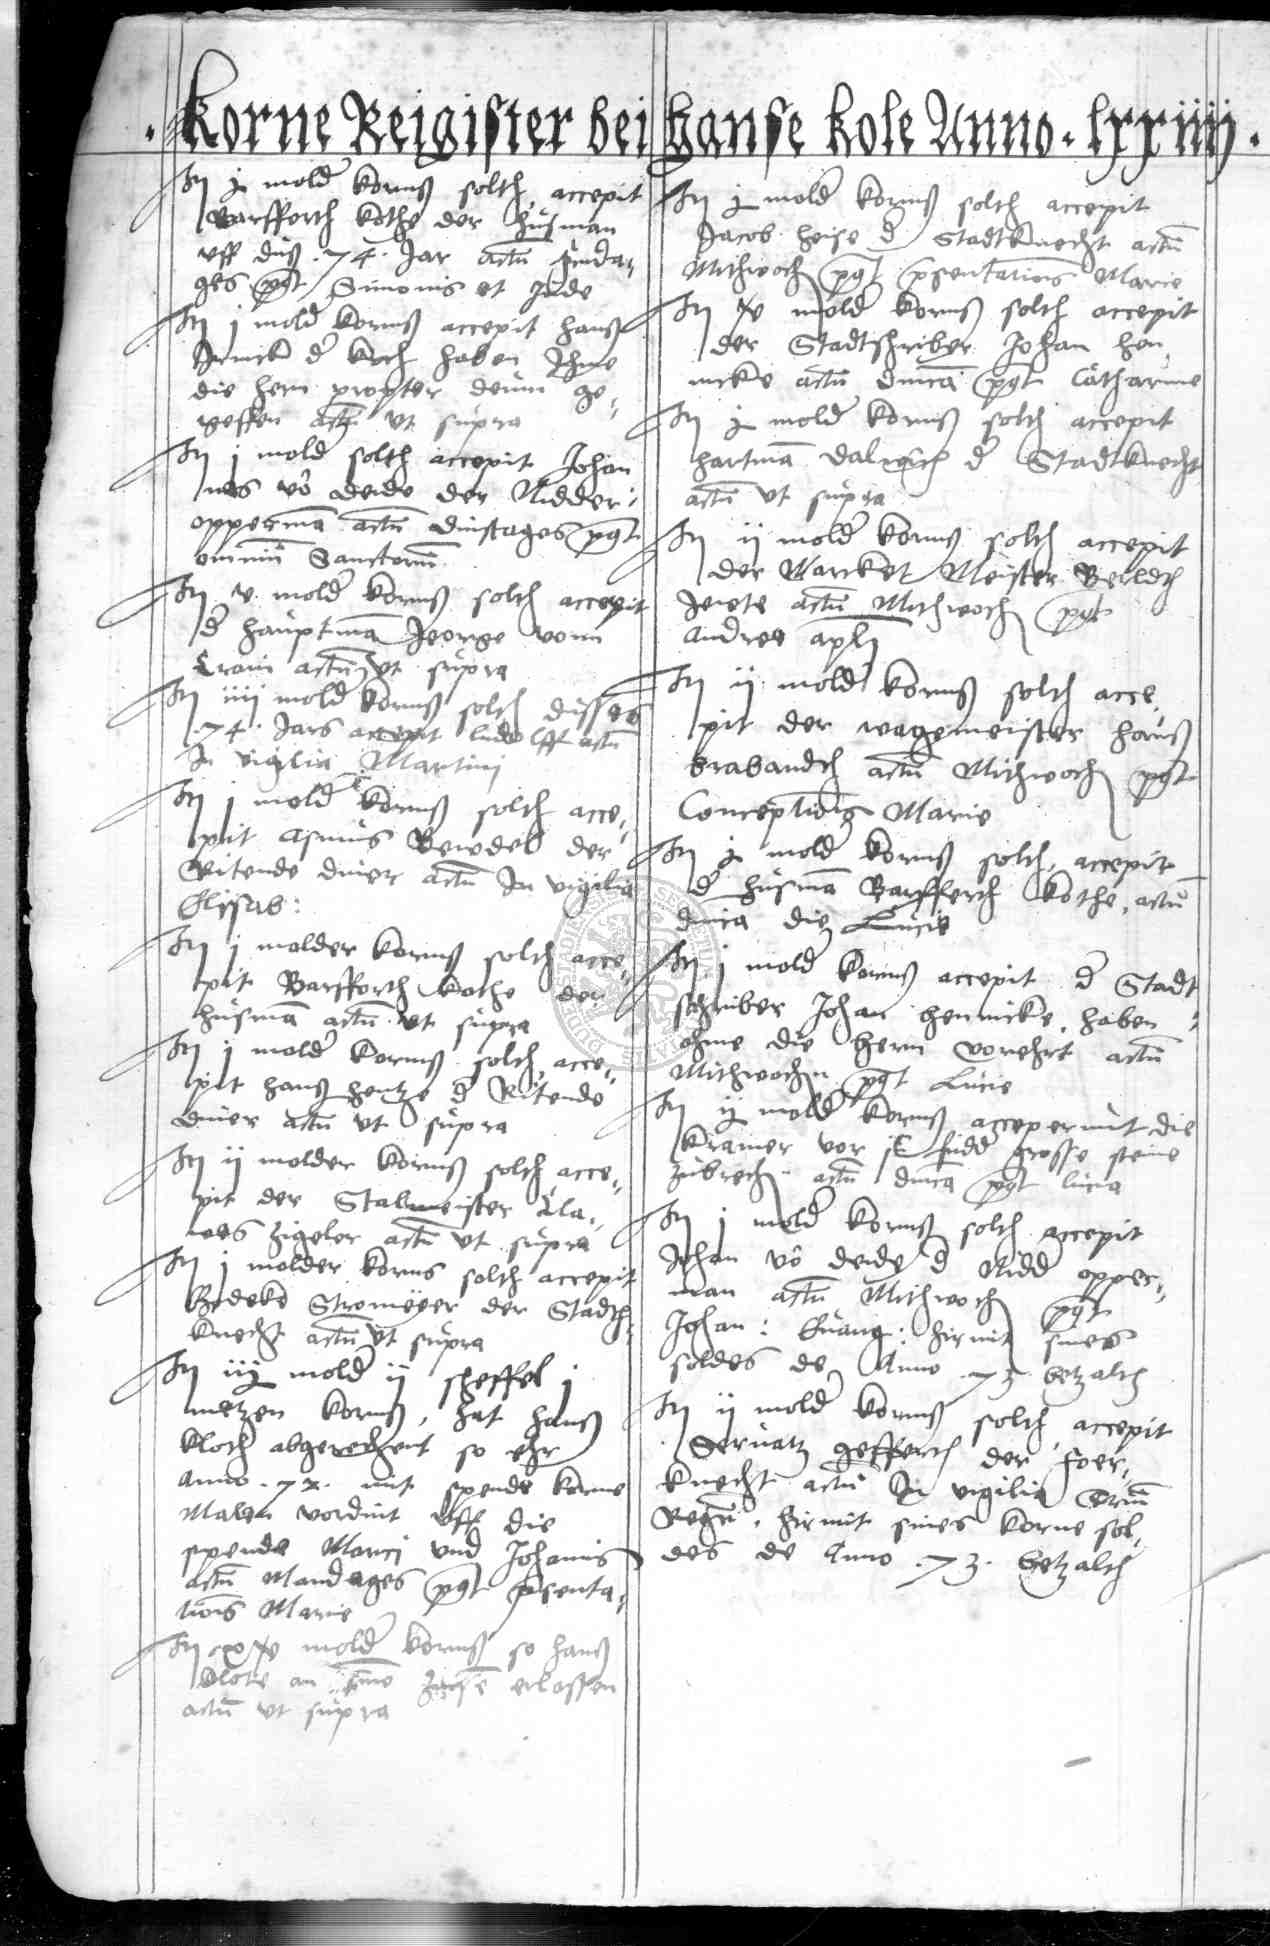 . Korne Reigister bei Hanse Kole Anno . lxxiiij .
It j mold korns solth accepit
Barfforth Kothe der Husman
uff dus . 74 . Jar actu sunda-
ges pqt Simonis et Jude
It j mold korns accepit Hans
d Koch haben Ihme
die hern propter deum ge-
geffen actu ut supra
It j mold solth accepit Johan
nes vo deide der Nidder-
opperma actu dinstages pqt
omniu Sanctoru
It v mold korns solth accepit
d Hauptma Jeorge vonn
actu ut supra
It iiij mold korns solth dusses
. 74 . Jars accepit ludolff actu
In vigilia Martini
It j mold korns solth acce-
pit Asmus Bewdel der
Ritende diner actu In vigilia
Elisab :
It j molder korns solth acce-
pit Barfforth Kothe der
husma actu ut supra
It j mold korns solth acce-
pit Hans Hentze d Ritende
diner actu ut supra
It ij molder korns solth acce-
pit der Stalmeister Cla-
wes Zigeler actu ut supra
It j molder korns solth accepit
Bodeke Stromeyer der Stadth-
knecht actu ut supra
It iij mold ij scheffel j
metzen korns , hat Hans
Kloth abgerechent so ehr
anno . 72 . mit spende korne
Malen vordint uff die
spende Marci und Johanis
actu Mandages pqt psenta-
tiois Marie
It mold korns so Hans
Klote an erlassen
actu ut supra
It j mold korns solth accepit
Jacob Heise d Stadtknecht actu
Mithwoch pqt psentatiois Marie
It mold korns solth accepit
der Stadtschriber Johan Hen
nicke actu dnica pqt Catharine
It j mold korns solth accepit
Hartma d Stadtknecht
actu ut supra
It ij mold korns solth accepit
der Marcket Meister Berldth
actu Mithwoch pqt
Andree apli
It ij mold korns solth acce-
pit der wagemeister Hans
brabandth actu Mithwoch pqt
Conceptiois Marie
It j mold korns solth accepit
d husma Barfferth Kothe , actu
dnica die Lucie
It j mold korns accepit d Stadt
schriber Johan Hennicke , haben
ohme die Hern vorehrt actu
Mithwoch pqt Lucie
It ij mold korns acceperunt die
Kramer vor fudd grosse steine
Zubrech actu dnica pqt lucia
It j mold korns solth accepit
Johan vo deide d Nidd opper-
man actu Mithwoch pqt
Johan : Evang : hirmit sines
soldes de Anno . 73 betzalth
It ij mold korns solth accepit
Servatz gefferth der Foer-
knecht actu In vigilia Triu
Regu . hirmit sines korne sol-
des de Anno . 73 . betzalth